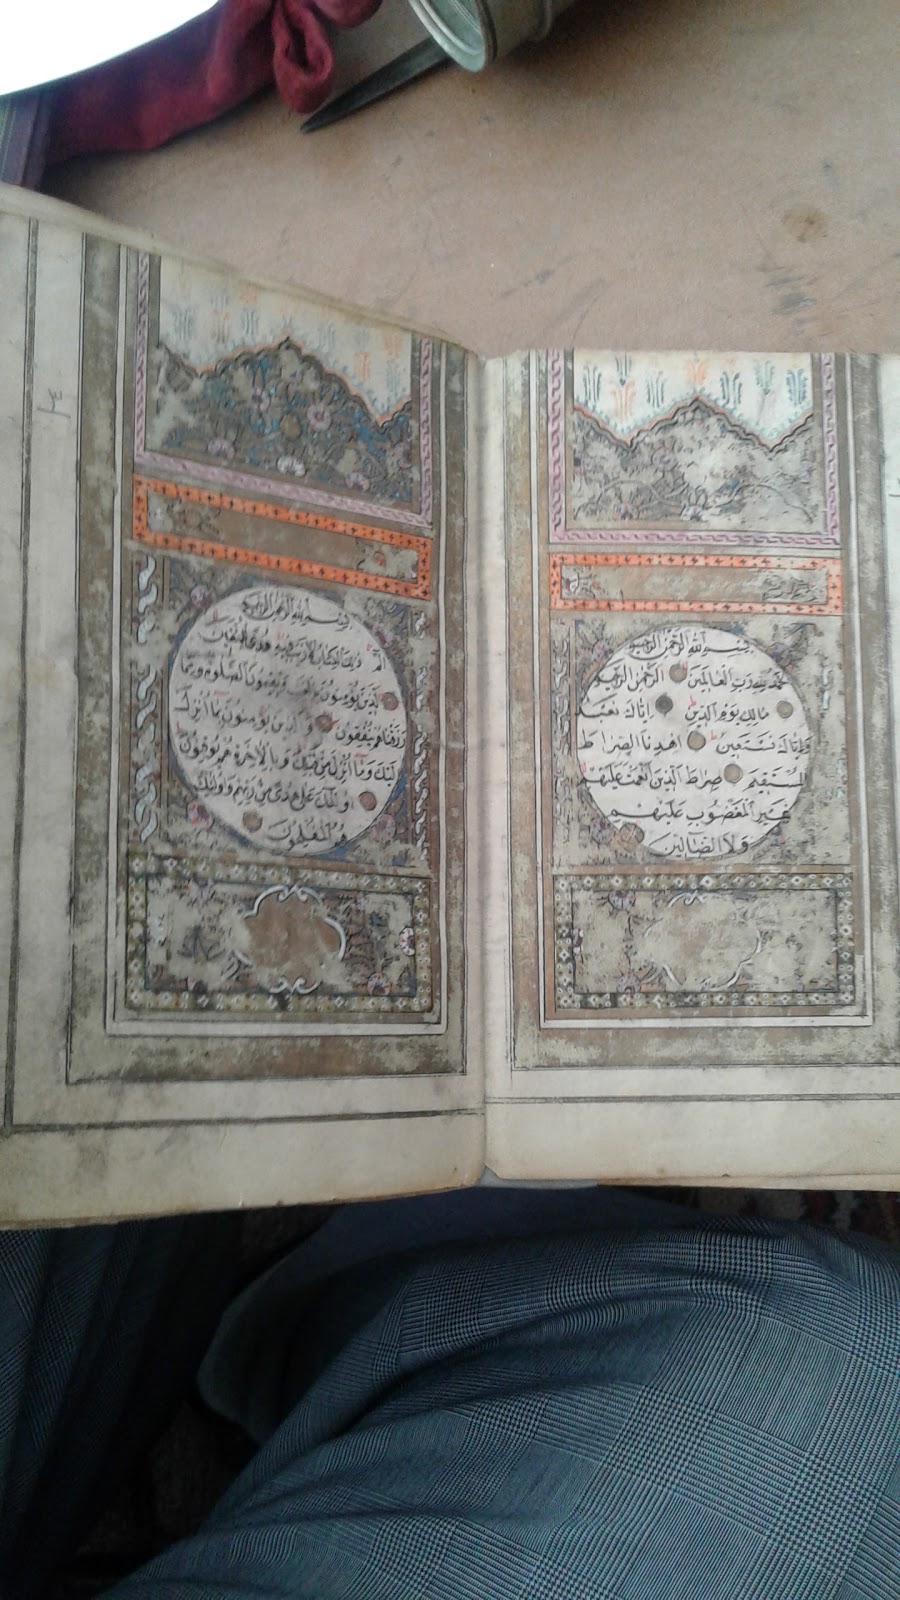 بسم الله الرحمن الرحيم
الحمد لله رب العالمين الرحمن الرحيم
مالك يوم الدين إياك نعبد
وإياك نستعين اهدنا الصراط
المستقيم صراط الذين أنعمت عليهم
غير المغضوب عليهم
ولا الضالين
بسم الله الرحمن الرحيم
الم ذلك الكتاب لا ريب فيه هدى للمتقين
الذين يؤمنون بالغيب ويقيمون الصلوة ومما
رزقناهم ينفقون والذين يؤمنون بما أنزل
إليك وما أنزل من قبلك وبالآخرة هم يوقنون
أولئك على هدى من ربهم وأولئك
هم المفلحون